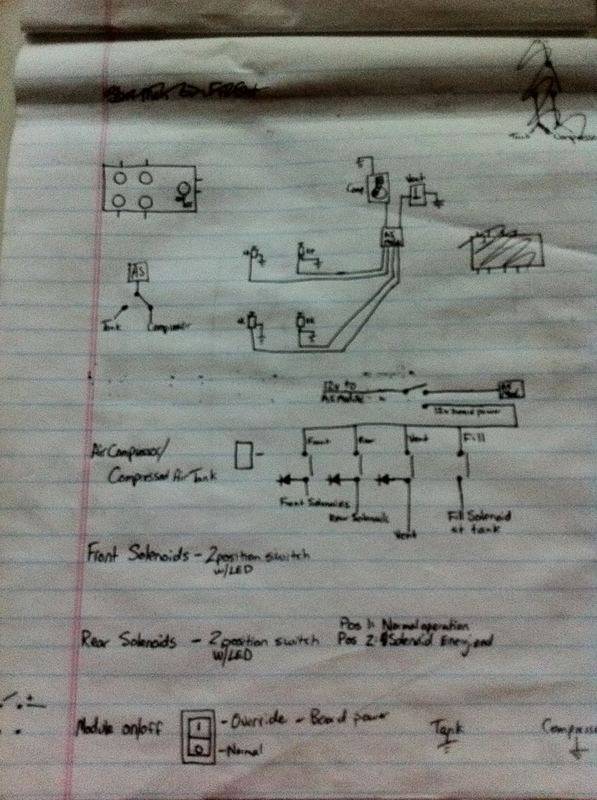 Tank Compressor
Comp
Vent
AS
AS
Tank Compressor
12v to
AS Module
12v board power
Front Rear Vent Fill
Air Compressor/
Compressed Air Tank
Front Solenoids
Rear Solenoids
Vent
Fill Solenoid
at tank
Front Solenoids - 2 position switch
w/LED
Rear Solenoids - 2 position switch
w/LED
Pos 1: Normal operation
Pos 2: Solenoid Energized
Module on/off
- Override - Board power
- Normal
Tank
Compress